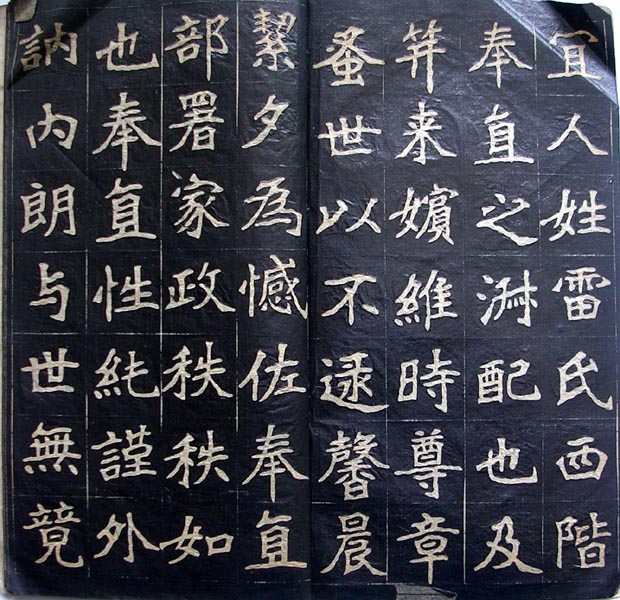 宜人姓雷氏西階
奉直之淑配也及
笄来嬪維時尊章
蚤世以不逮馨晨
絜夕為憾佐奉直
部署家政秩秩如
也奉直性純謹外
訥内朗与世無竟